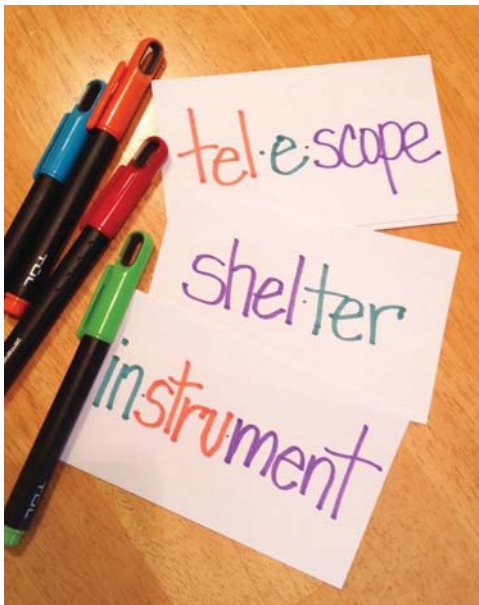 tel·e·scope
shel·ter
in·stru·ment
TUL
TUL